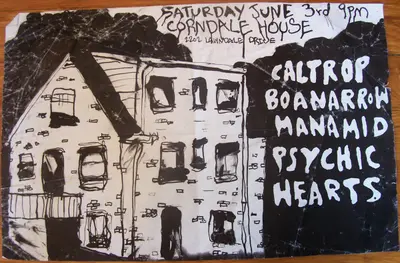 SATURDAY JUNE 3rd 9pm
CORNDALE HOUSE
DRIVE
CALTROP
BOANARROW
MANAMID
PSYCHIC
HEARTS